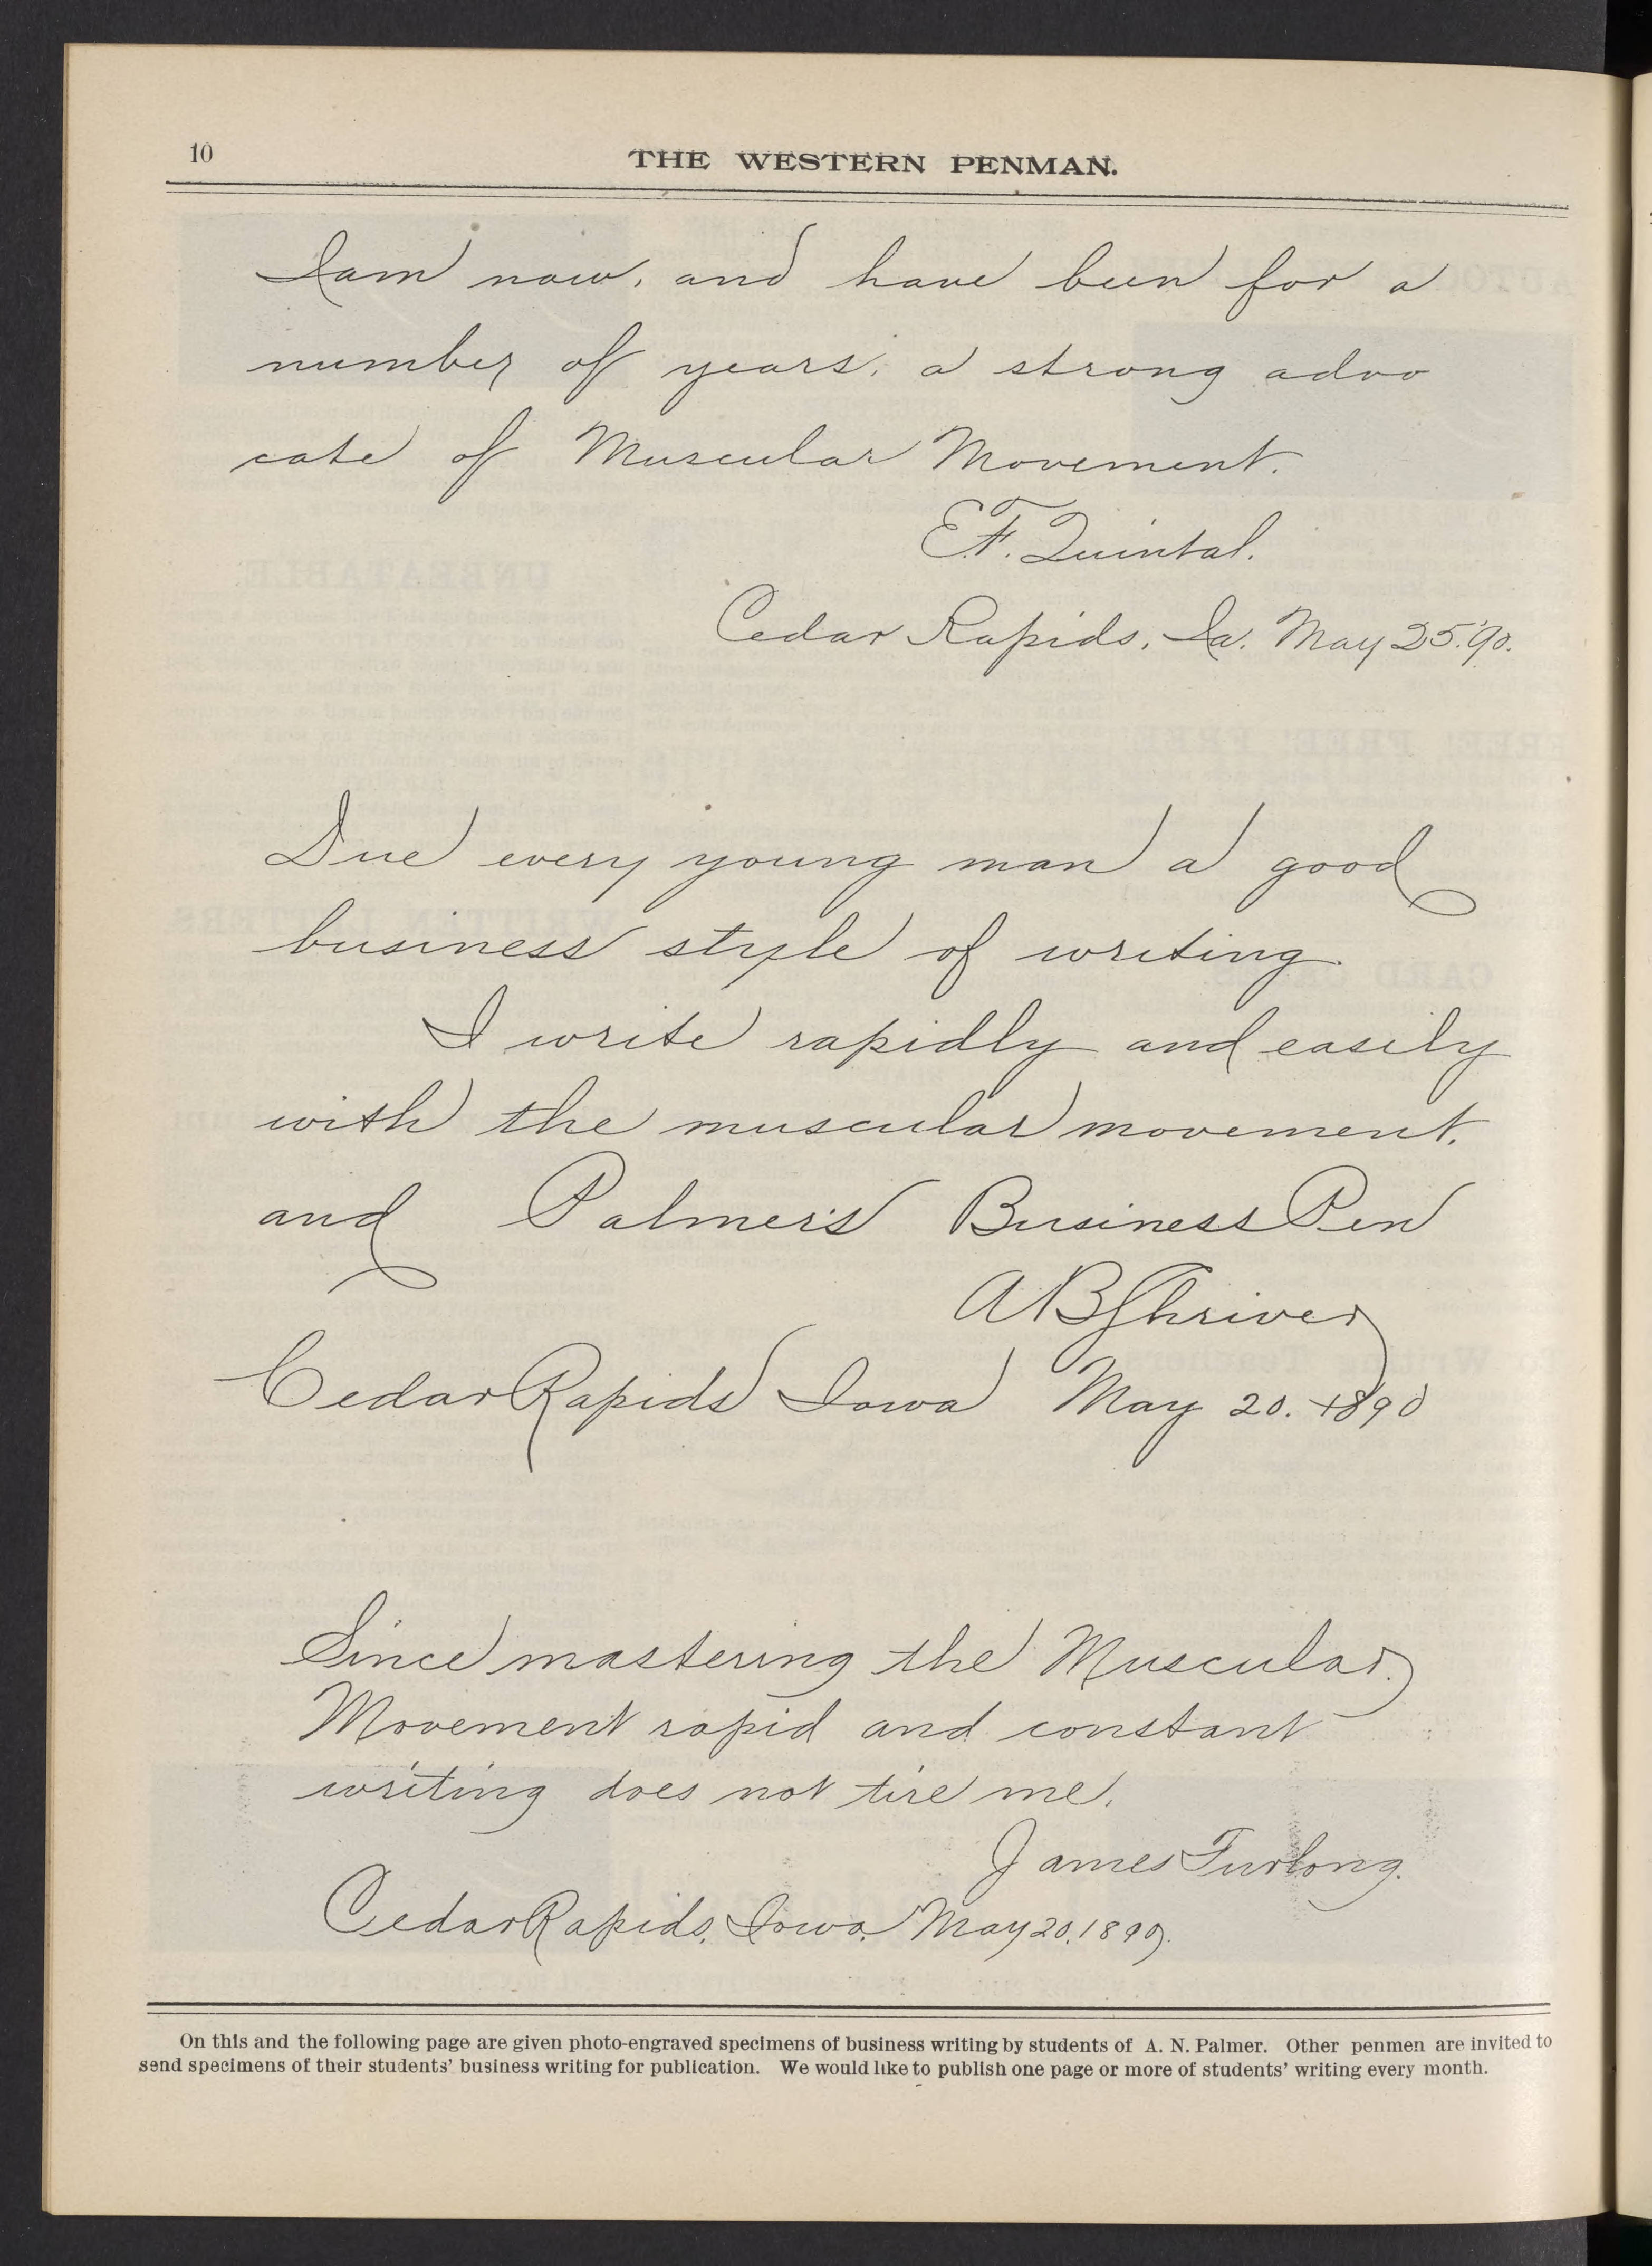 10
THE WESTERN PENMAN.
I am now, and have been for a
number of years, a strong advo
cate of Muscular Movement.
E.F. Quintal.
Cedar Rapids, Ia. May 25.'90.
Due every young man a good
business style of writing.
I write rapidly and easily
with the muscular movement.
and Palmer's Business Pen
A B Shriver
Cedar Rapids Iowa May 20. 1890
Since mastering the Muscular.
Movement rapid and constant
writing does not tire me.
James Furlong.
Cedar Rapids, Iowa, May 20, 1890.
On this and the following page are given photo-engraved specimens of business writing by students of A. N. Palmer. Other penmen are invited to
send specimens of their students' business writing for publication. We would like to publish one page or more of students' writing every month.